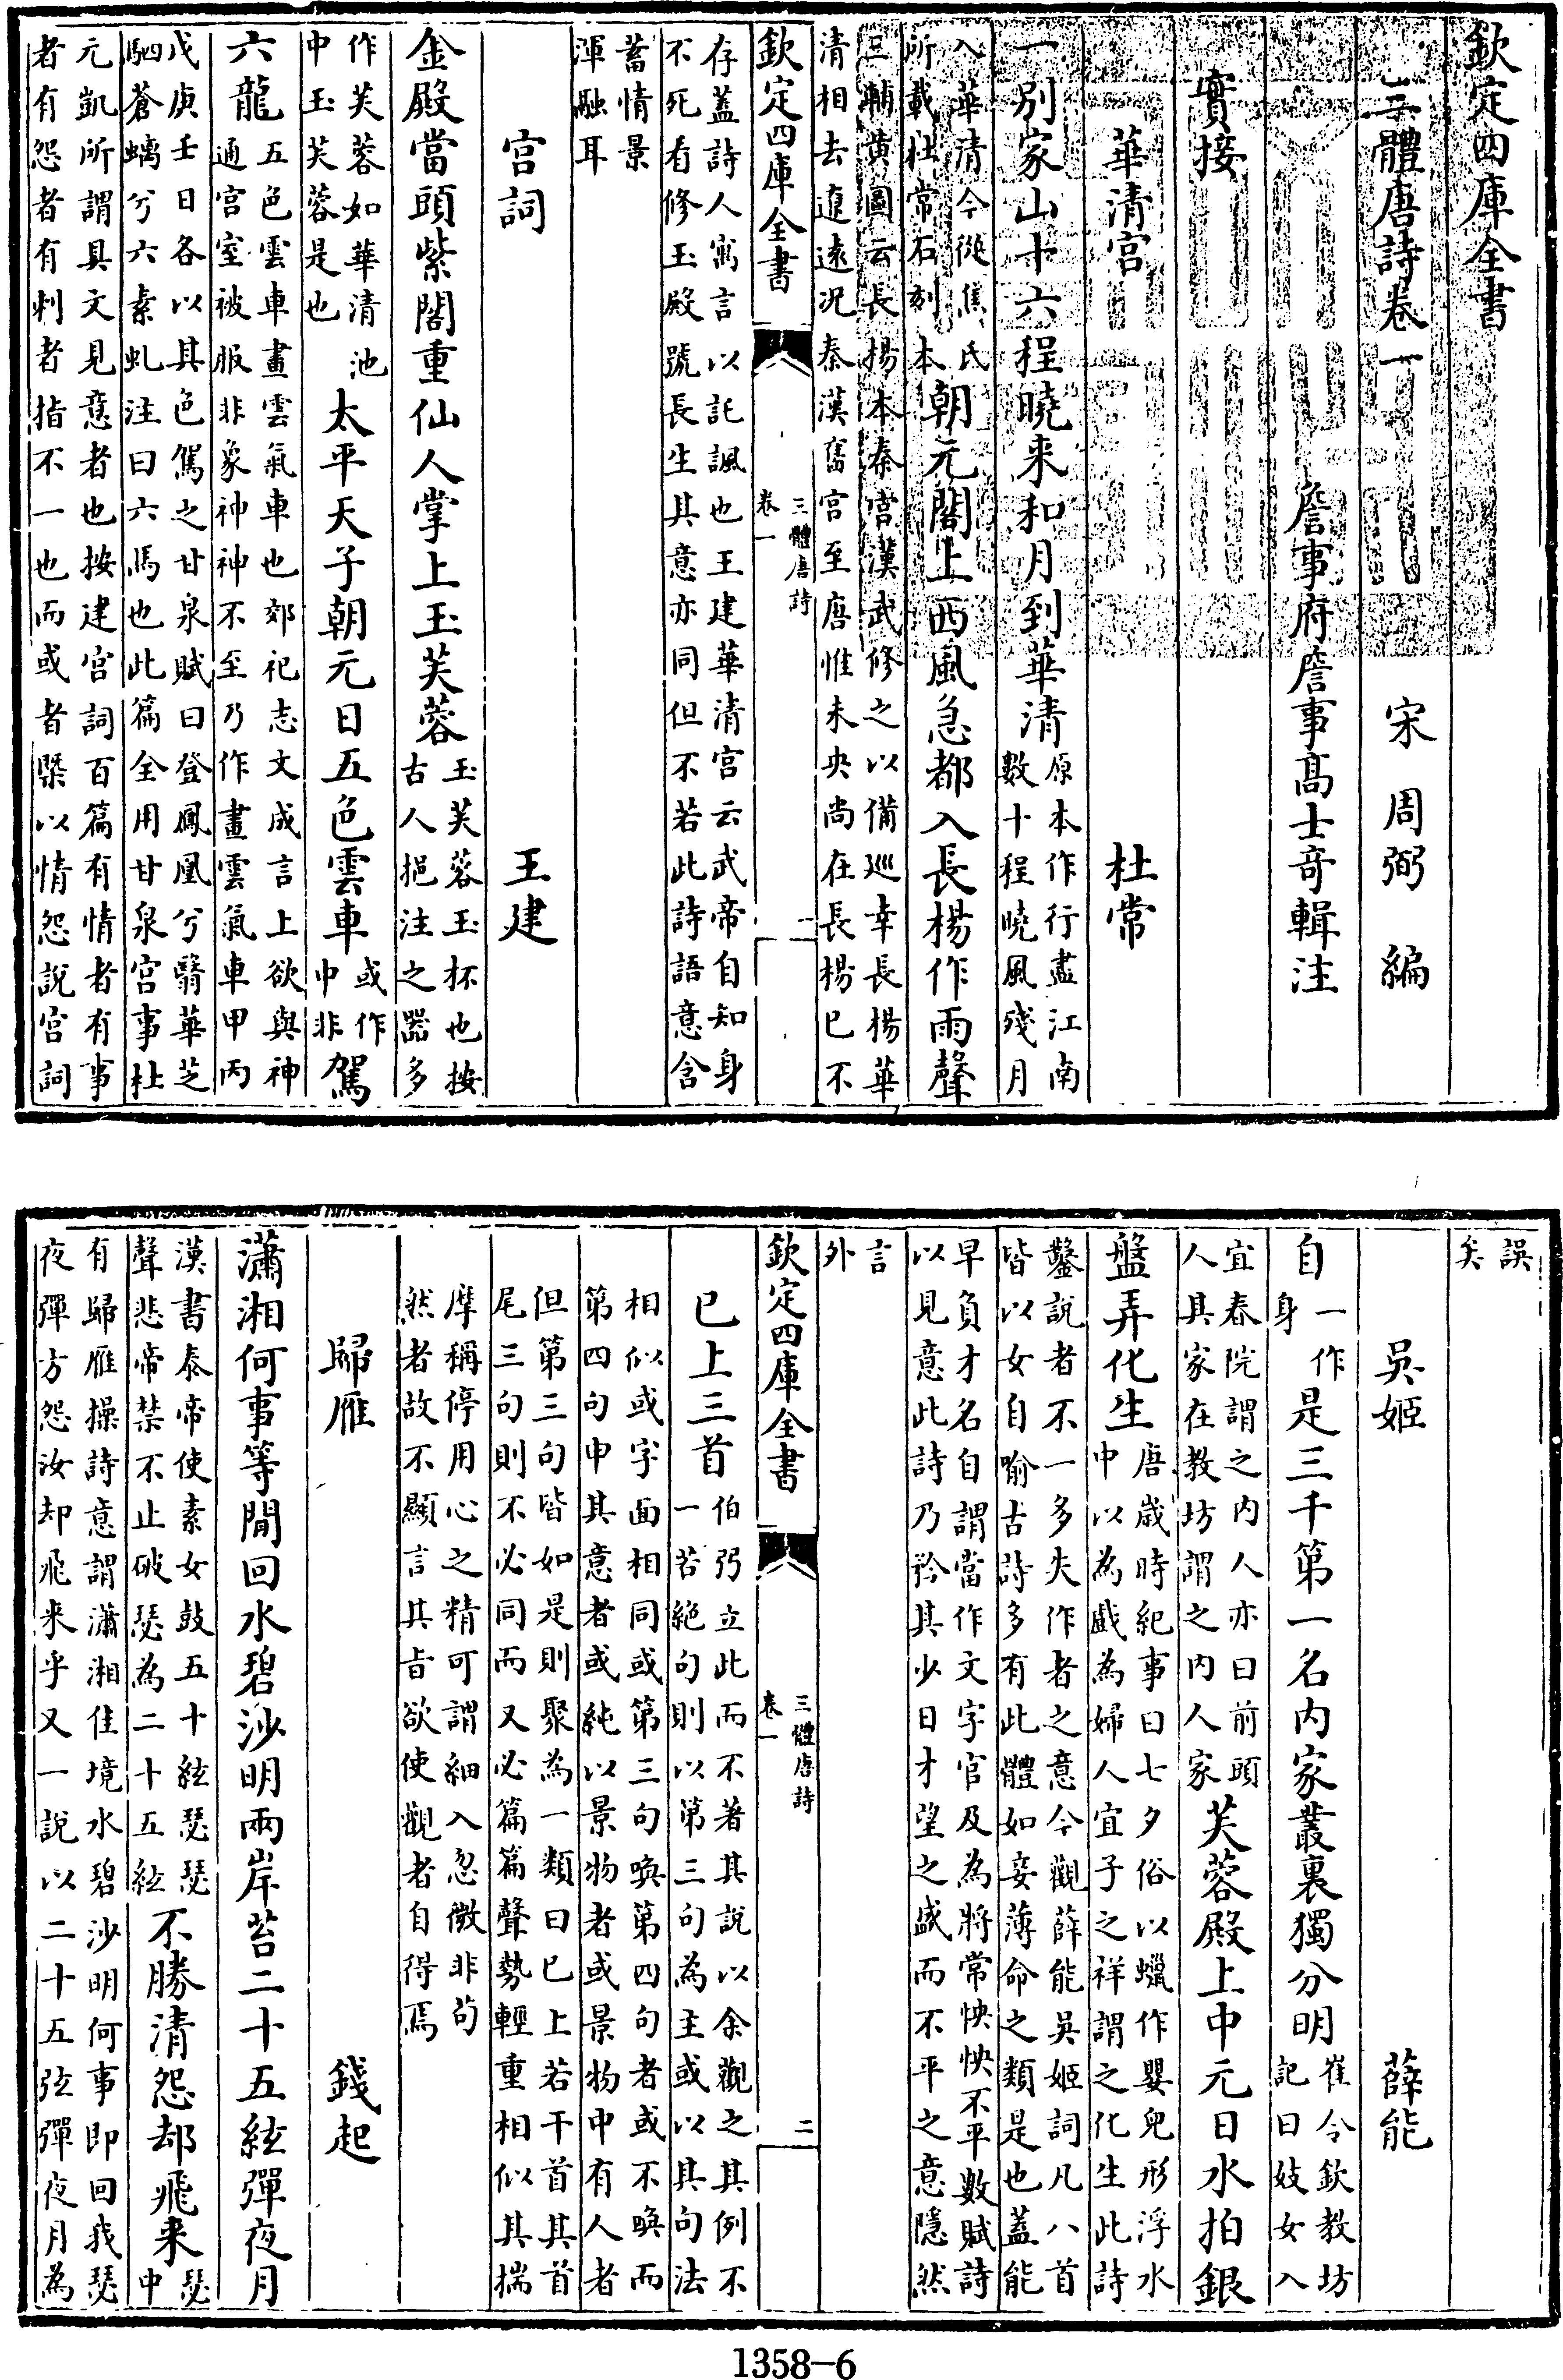 欽定四庫全書
三體唐詩卷一
宋 周弼 編
詹事府詹事高士奇輯注
實接
華清宮
杜常
一別家山十六程曉來和月到華清
原本作行盡江南
數十程曉風殘月
入華清今從焦氏
所載杜常石刻本
朝元閣上西風急都入長楊作雨聲
三輔黄圖云長楊本秦宫漢武修之以備巡幸長楊華
清相去遼遠况秦漢舊宫至唐惟未央尚在長楊已不
欽定四庫全書
三體唐詩
卷一
一
存蓋詩人寓言以託諷也王建華清宫云武帝自知身
不死看修玉殿號長生其意亦同但不若此詩語意含
蓄情景
渾融耳
宫詞
王建
金殿當頭紫閣重仙人掌上玉芙蓉
玉芙蓉玉杯也按
古人挹注之器多
作芙蓉如華清池
中玉芙蓉是也
太平天子朝元日五色雲車
或作
中非
駕
六龍
五色雲車畫雲氣車也郊祀志文成言上欲與神
通宫室被服非象神神不至乃作畫雲氣車甲丙
戊庚壬日各以其色駕之甘泉賦曰登鳳凰兮翳華芝
駟蒼螭兮六素虬注曰六馬也此篇全用甘泉宫事杜
元凱所謂具文見意者也按建宫詞百篇有情者有事
者有怨者有刺者指不一也而或者槩以情怨說宫詞
誤
矣
吳姬
薛能
自
一作
身
是三千第一名内家叢裏獨分明
崔令欽教坊
記曰妓女入
宜春院謂之内人亦曰前頭
人其家在教坊謂之内人家
芙蓉殿上中元日水拍銀
盤弄化生
唐歲時紀事曰七夕俗以蠟作嬰兒形浮水
中以為戲為婦人宜子之祥謂之化生此詩
鑿說者不一多失作者之意今觀薛能吳姬詞凡八首
皆以女自喻古詩多有此體如妾薄命之類是也蓋能
早負才名自謂當作文字官及為將常怏怏不平數賦詩
以見意此詩乃矜其少日才望之盛而不平之意隱然
言
外
欽定四庫全書
三體唐詩
卷一
二
已上三首
伯弜立此而不著其說以余觀之其例不
一若絶句則以第三句為主或以其句法
相似或字面相同或第三句喚第四句者或不喚而
第四句申其意者或純以景物者或景物中有人者
但第三句皆如是則聚為一類曰已上若干首其首
尾三句則不必同而又必篇篇聲勢輕重相似其揣
摩稱停用心之精可謂細入忽微非苟
然者故不顯言其旨欲使觀者自得焉
歸雁
錢起
瀟湘何事等閒回水碧沙明兩岸苔二十五絃彈夜月
漢書泰帝使素女鼓五十絃瑟瑟
聲悲帝禁不止破瑟為二十五絃
不勝清怨却飛來
瑟
中
有歸雁操詩意謂瀟湘佳境水碧沙明何事即回我瑟
夜彈方怨汝却飛來乎又一說以二十五弦彈夜月為
1358-6